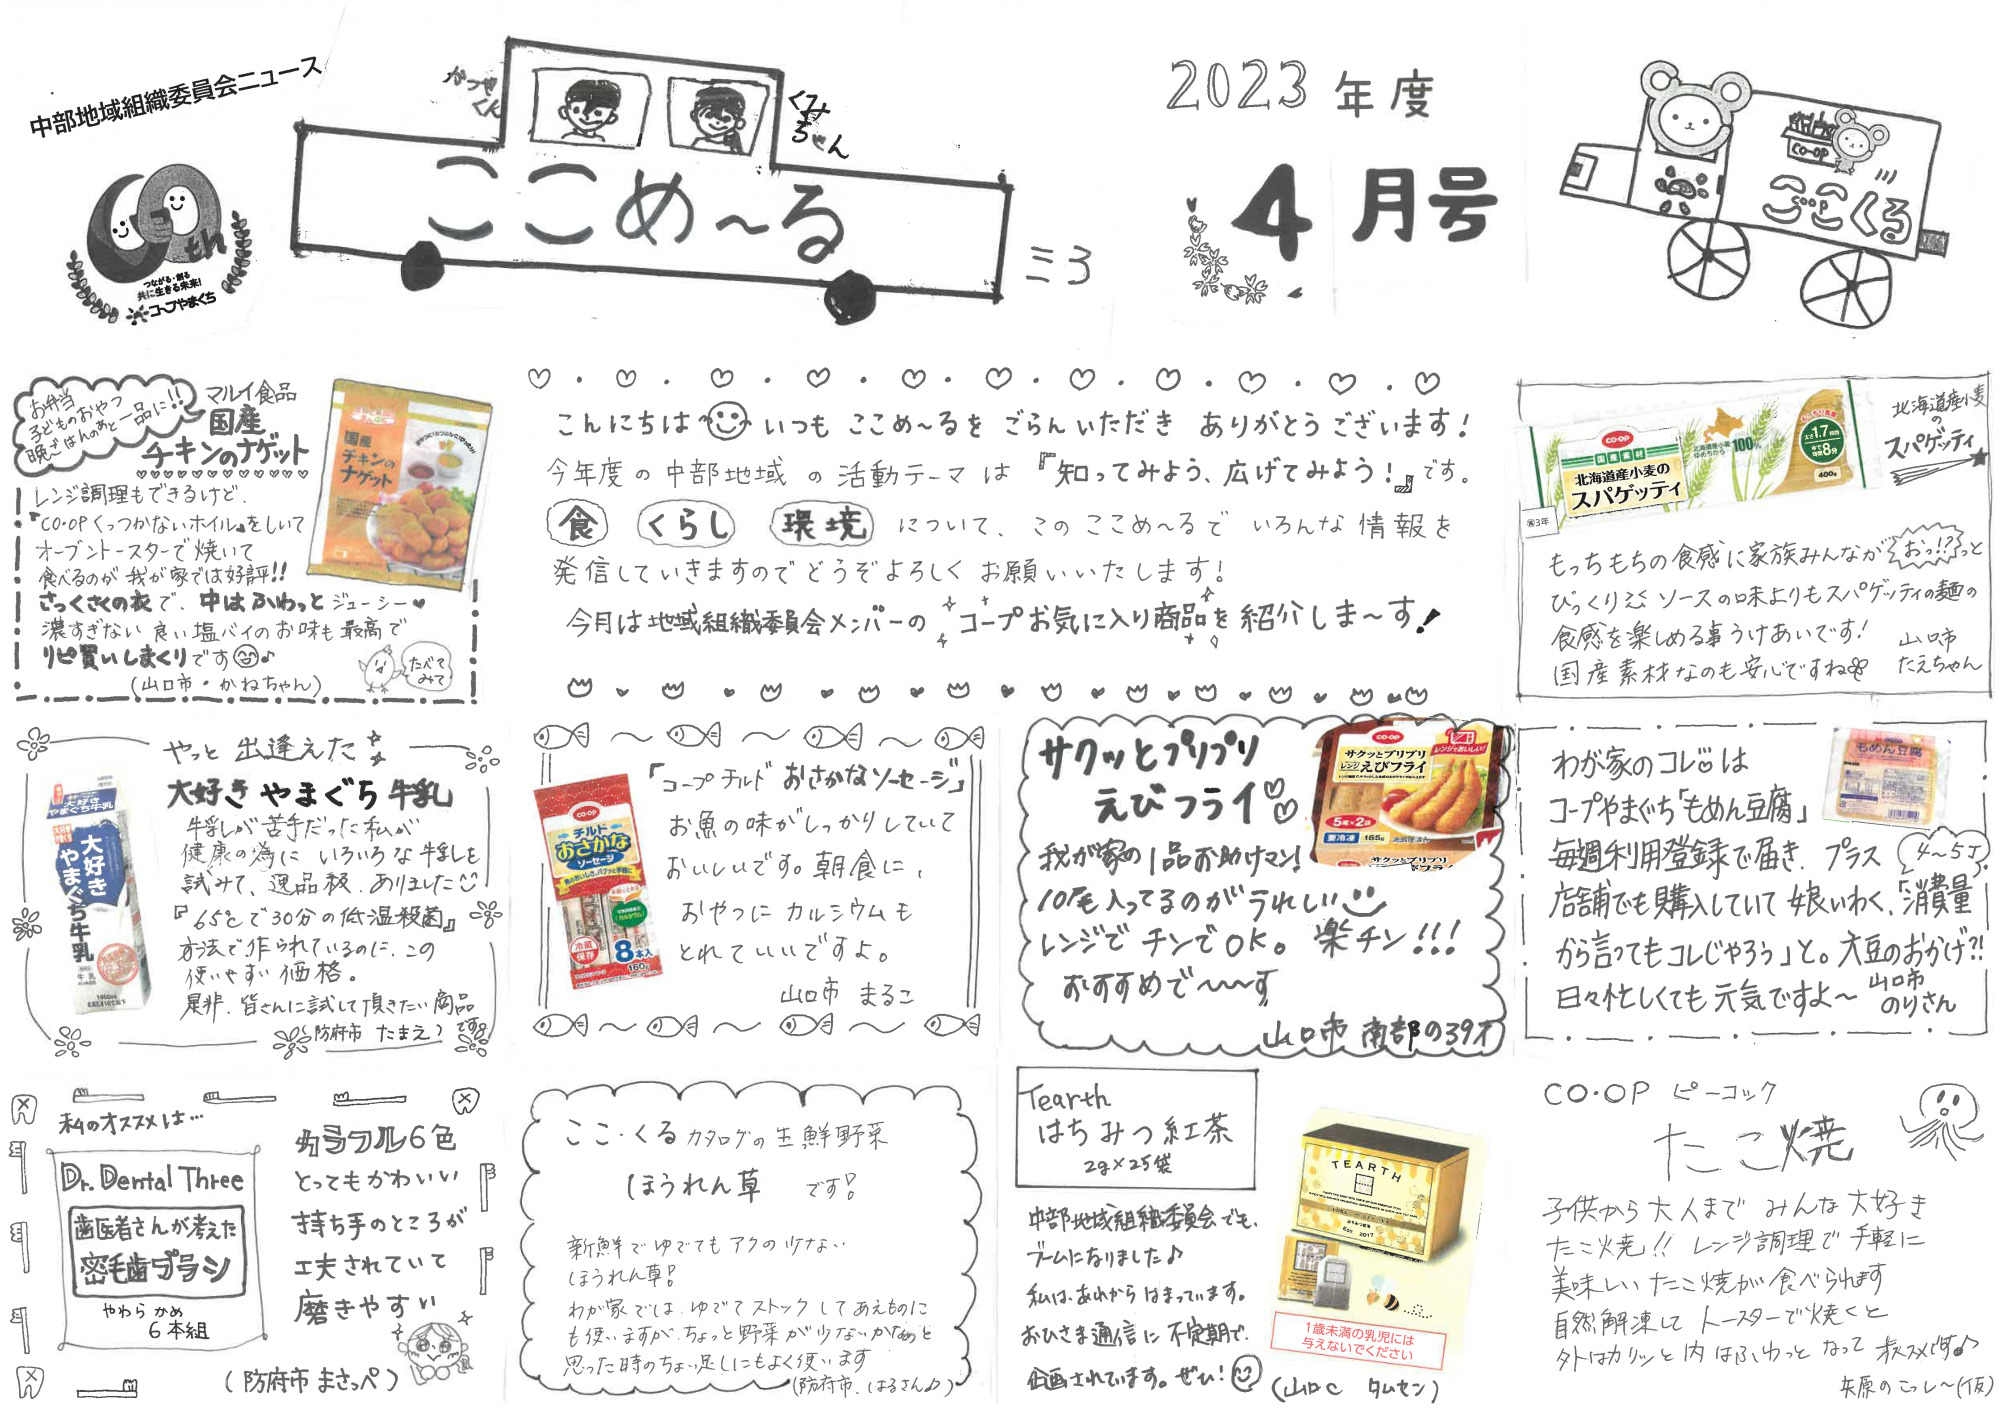 中部地域組織委員会ニュース
th
つながる・創る
共に生きる未来!
コープやまぐち
かつやくん
くみちゃん
ここめ〜る
2023年度
4月号
CO-OP
ここくる
お弁当
子どものおやつ
晩ごはんのあと一品に!!
マルイ食品
国産
チキンのナゲット
国産
チキンの
ナゲット
レンジ調理もできるけど、
『CO・OPくっつかないホイル』をしいて
オーブントースターで焼いて
食べるのが我が家では好評!!
さっくさくの衣で、中はふわっとジューシー♥
濃すぎない良い塩バイのお味も最高で
リピ買いしまくりです♪
(山口市・かねちゃん)
たべて
みて
こんにちは いつも ここめ〜るを ごらんいただき ありがとうございます!
今年度の中部地域の活動テーマは『知ってみよう、広げてみよう!』です。
食 くらし 環境 について、このここめ〜るで いろんな情報を
発信していきますのでどうぞよろしくお願いいたします!
今月は地域組織委員会メンバーの コープお気に入り商品を紹介しま〜す!
北海道産小麦
の
スパゲッティ
CO-OP
国産素材
北海道産小麦の
スパゲッティ
100%
太さ1.7mm
8分
400g
3年
もっちもちの食感に家族みんながおっ!?っと
びっくり ソースの味よりもスパゲッティの麺の
食感を楽しめる事うけあいです!
国産素材なのも安心ですね
山口市
たえちゃん
やっと出逢えた
大好きやまぐち牛乳
大好き
やまぐち牛乳
牛乳が苦手だった私が
健康の為にいろいろな牛乳を
試みて、逸品級、ありました
『65℃で30分の低温殺菌』
方法で作られているのに、この
使いやすい価格。
是非、皆さんに試して頂きたい商品
です
防府市 たまえ♪
「コープチルド おさかなソーセージ」
CO-OP
チルド
おさかな
ソーセージ
冷蔵
保存
8本入
160g
お魚の味がしっかりしていて
おいしいです。朝食に、
おやつに カルシウムも
とれていいですよ。
山口市 まるこ
サクッとプリプリ
えびフライ
CO-OP
サクッとプリプリ
レンジえびフライ
レンジでおいしい!
5尾×2袋
要冷凍
165g
我が家の1品お助けマン!
10尾も入ってるのがうれしい
レンジでチンでOK。楽チン!!!
おすすめで〜〜す
山口市 南部の39才
わが家のコレ は
コープやまぐち「もめん豆腐」
もめん豆腐
毎週利用登録で届き、プラス
4〜5丁
店舗でも購入していて娘いわく、「消費量
から言ってもコレじゃろう」と。大豆のおかげ?!
日々忙しくても元気ですよ〜
山口市
のりさん
私のオススメは…
Dr. Dental Three
歯医者さんが考えた
密毛歯ブラシ
やわらかめ
6本組
カラフル6色
とってもかわいい
持ち手のところが
工夫されていて
磨きやすい
(防府市 まさっぺ)
ここ・くるカタログの生鮮野菜
ほうれん草 です!
新鮮でゆでてもアクの少ない
ほうれん草!
わが家では、ゆでてストックしてあえものに
も使いますが、ちょっと野菜が少ないかなぁと
思った時のちょい足しにもよく使います
(防府市、はるさん♪)
Tearth
はちみつ紅茶
2g×25袋
TEARTH
中部地域組織委員会でも、
ブームになりました♪
私は、あれからはまっています。
おひさま通信に不定期で、
企画されています。ぜひ!
1歳未満の乳児には
与えないでください
(山口C タムセン)
CO・OP ピーコック
たこ焼
子供から大人までみんな大好き
たこ焼!! レンジ調理で手軽に
美味しいたこ焼が食べられます
自然解凍してトースターで焼くと
外はカリッと内はふわっとなって オススメです♪
矢原のこっし〜(仮)